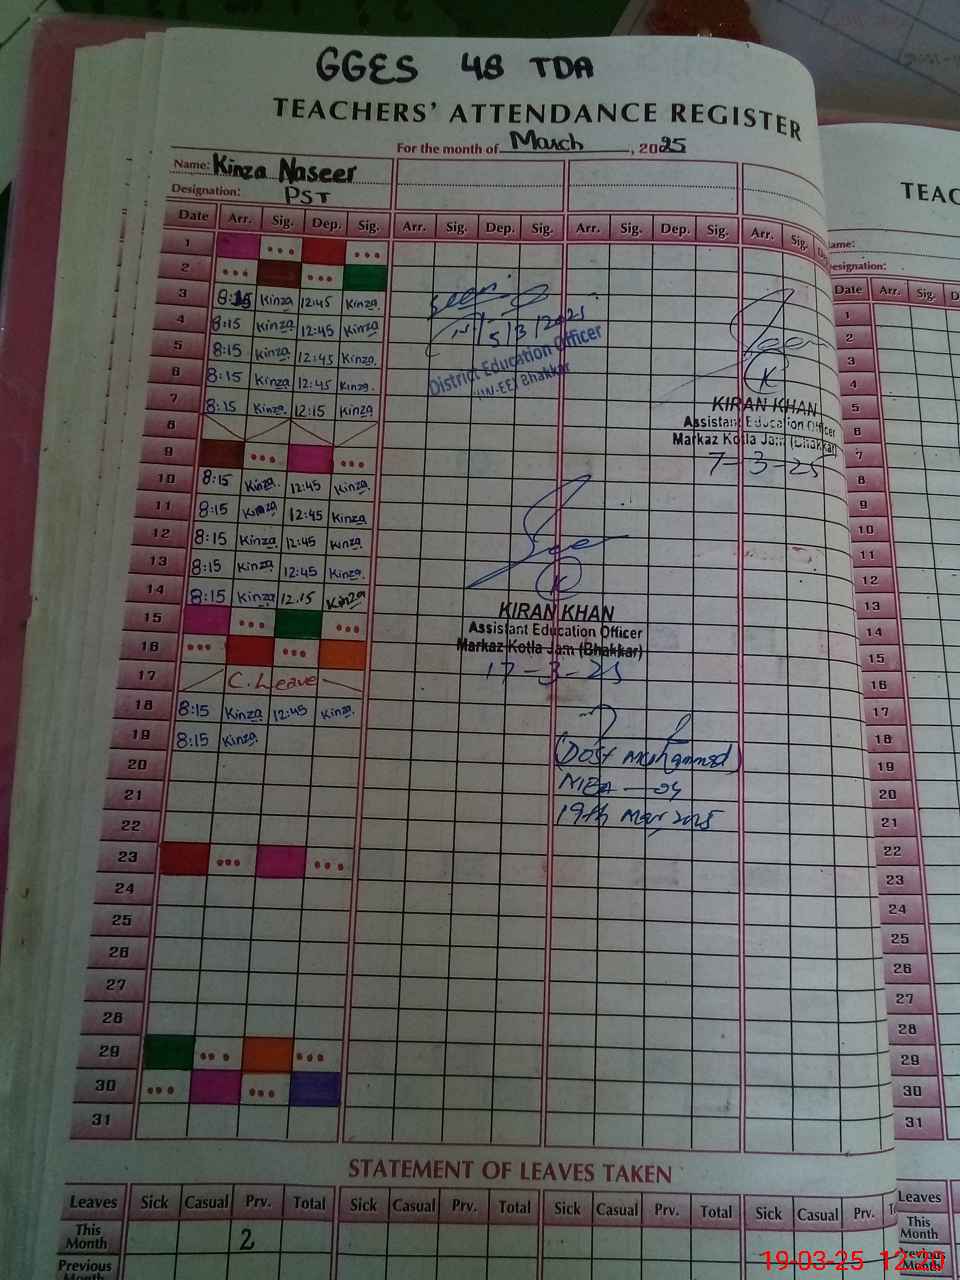 GGES 48 TDA
TEACHERS' ATTENDANCE REGISTER
For the month of March, 2025
Name: Kinza Naseer
Designation: PST
Date Arr. Sig. Dep. Sig. Arr. Sig. Dep. Sig. Arr. Sig. Dep. Sig. Arr. Sig.
1
2
3 8:15 Kinza 12:45 Kinza.
4 8:15 Kinza 12:45 Kinza
5 8:15 Kinza 12:45 Kinza.
6 8:15 Kinza 12:45 Kinza.
7 8:15 Kinza 12:15 Kinza
8
9
10 8:15 Kinza. 12:45 Kinza.
11 8:15 Kinza 12:45 Kinza
12 8:15 Kinza 12:45 Kinza.
13 8:15 Kinza. 12:45 Kinza.
14 8:15 Kinza 12.15 Kinza
15
16
17 C. Leave
18 8:15 Kinza 12:45 Kinza.
19 8:15 Kinza
20
21
22
23
24
25
26
27
28
29
30
31
Seen
5/3/2025
District Education Officer
(W-EE) Bhakkar
Seen
K
KIRAN KHAN
Assistant Education Officer
Markaz Kotla Jam (Bhakkar)
7-3-25
Seen
K
KIRAN KHAN
Assistant Education Officer
Markaz Kotla Jam (Bhakkar)
17-3-25
(Dost Muhammad)
MEA-04
19th Mar, 2025
STATEMENT OF LEAVES TAKEN
Leaves Sick Casual Prv. Total Sick Casual Prv. Total Sick Casual Prv. Total Sick Casual Prv.
This Month 2
Previous Month
TEAC
Name:
Designation:
Date Arr. Sig. D
1
2
3
4
5
6
7
8
9
10
11
12
13
14
15
16
17
18
19
20
21
22
23
24
25
26
27
28
29
30
31
Leaves
This Month
Previous Month
19-03-25